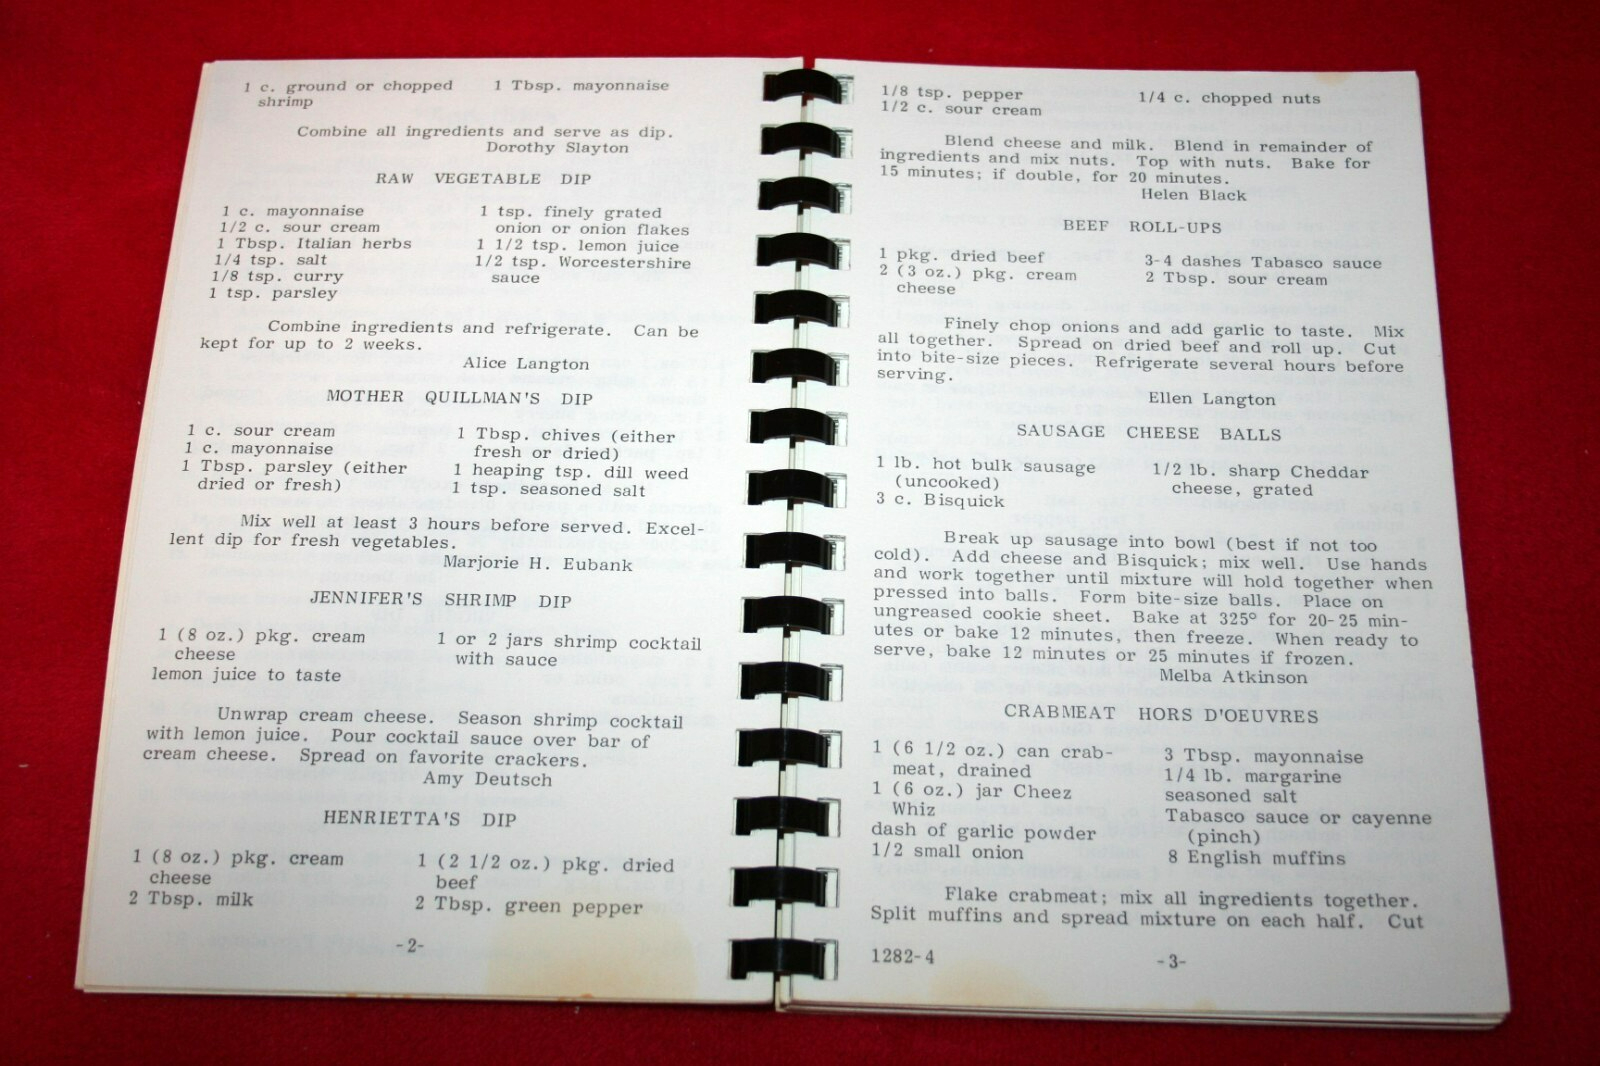 1 c. ground or chopped
shrimp
1 Tbsp. mayonnaise
Combine all ingredients and serve as dip.
Dorothy Slayton
RAW VEGETABLE DIP
1 c. mayonnaise
1/2 c. sour cream
1 Tbsp. Italian herbs
1/4 tsp. salt
1/8 tsp. curry
1 tsp. parsley
1 tsp. finely grated
onion or onion flakes
1 1/2 tsp. lemon juice
1/2 tsp. Worcestershire
sauce
Combine ingredients and refrigerate. Can be
kept for up to 2 weeks.
Alice Langton
MOTHER QUILLMAN'S DIP
1 c. sour cream
1 c. mayonnaise
1 Tbsp. parsley (either
dried or fresh)
1 Tbsp. chives (either
fresh or dried)
1 heaping tsp. dill weed
1 tsp. seasoned salt
Mix well at least 3 hours before served. Excel-
lent dip for fresh vegetables.
Marjorie H. Eubank
JENNIFER'S SHRIMP DIP
1 (8 oz.) pkg. cream
cheese
lemon juice to taste
1 or 2 jars shrimp cocktail
with sauce
Unwrap cream cheese. Season shrimp cocktail
with lemon juice. Pour cocktail sauce over bar of
cream cheese. Spread on favorite crackers.
Amy Deutsch
HENRIETTA'S DIP
1 (8 oz.) pkg. cream
cheese
2 Tbsp. milk
1 (2 1/2 oz.) pkg. dried
beef
2 Tbsp. green pepper
-2-
1/8 tsp. pepper
1/2 c. sour cream
1/4 c. chopped nuts
Blend cheese and milk. Blend in remainder of
ingredients and mix nuts. Top with nuts. Bake for
15 minutes; if double, for 20 minutes.
Helen Black
BEEF ROLL-UPS
1 pkg. dried beef
2 (3 oz.) pkg. cream
cheese
3-4 dashes Tabasco sauce
2 Tbsp. sour cream
Finely chop onions and add garlic to taste. Mix
all together. Spread on dried beef and roll up. Cut
into bite-size pieces. Refrigerate several hours before
serving.
Ellen Langton
SAUSAGE CHEESE BALLS
1 lb. hot bulk sausage
(uncooked)
3 c. Bisquick
1/2 lb. sharp Cheddar
cheese, grated
Break up sausage into bowl (best if not too
cold). Add cheese and Bisquick; mix well. Use hands
and work together until mixture will hold together when
pressed into balls. Form bite-size balls. Place on
ungreased cookie sheet. Bake at 325° for 20-25 min-
utes or bake 12 minutes, then freeze. When ready to
serve, bake 12 minutes or 25 minutes if frozen.
Melba Atkinson
CRABMEAT HORS D'OEUVRES
1 (6 1/2 oz.) can crab-
meat, drained
1 (6 oz.) jar Cheez
Whiz
dash of garlic powder
1/2 small onion
3 Tbsp. mayonnaise
1/4 lb. margarine
seasoned salt
Tabasco sauce or cayenne
(pinch)
8 English muffins
Flake crabmeat; mix all ingredients together.
Split muffins and spread mixture on each half. Cut
1282-4
-3-